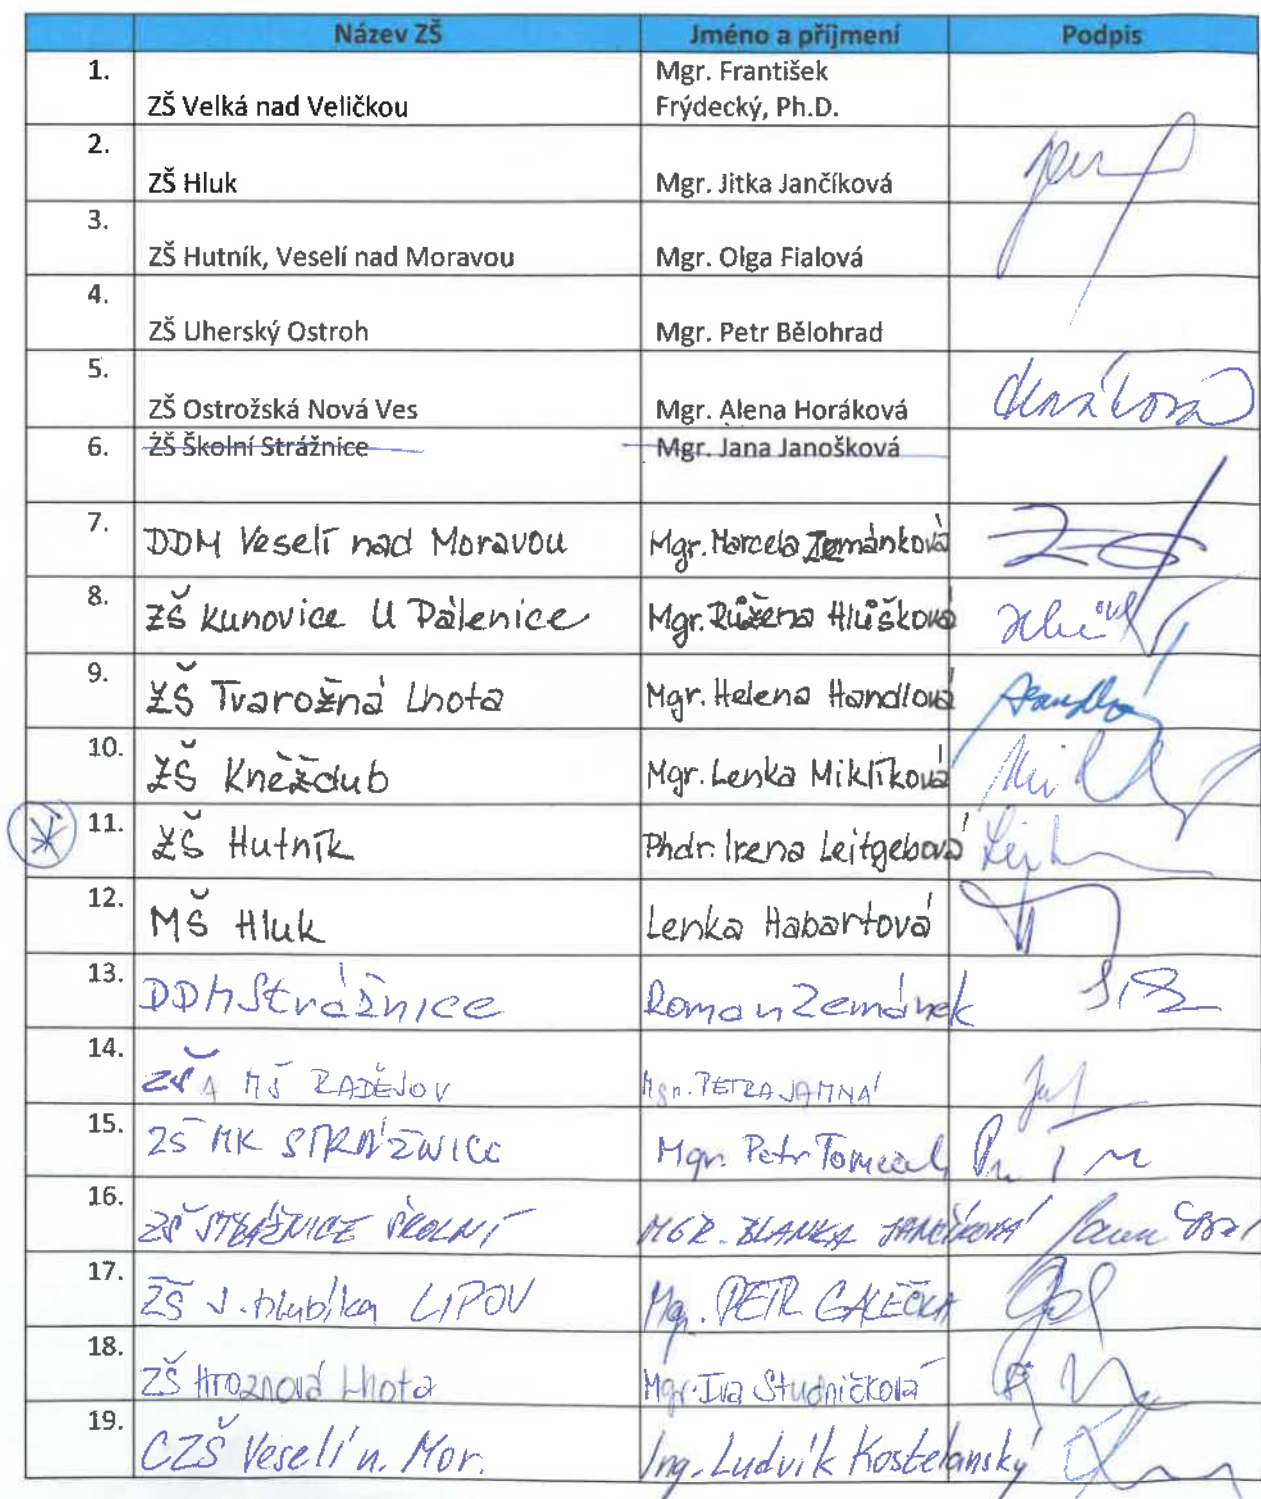 Název ZŠ Jméno a příjmení Podpis
1. ZŠ Velká nad Veličkou Mgr. František
Frýdecký, Ph.D.
2. ZŠ Hluk Mgr. Jitka Jančíková
3. ZŠ Hutník, Veselí nad Moravou Mgr. Olga Fialová
4. ZŠ Uherský Ostroh Mgr. Petr Bělohrad
5. ZŠ Ostrožská Nová Ves Mgr. Alena Horáková
6. ZŠ Školní Strážnice Mgr. Jana Janošková
7. DDM Veselí nad Moravou Mgr. Marcela Zemánková
8. ZŠ Kunovice U Pálenice Mgr. Růžena Hlůšková
9. ZŠ Tvarožná Lhota Mgr. Helena Handlová
10. ZŠ Kněždub Mgr. Lenka Miklíková
11. ZŠ Hutník Phdr. Irena Leitgebová
12. MŠ Hluk Lenka Habartová
13. DDM Strážnice Roman Zemánek
14. ZŠ A MŠ RADĚJOV Mgr. PETRA JAMNÁ
15. ZŠ MK STRÁŽNICE Mgr. Petr Tomeček
16. ZŠ STRÁŽNICE ŠKOLNÍ MGR. BLANKA JANČÍKOVÁ
17. ZŠ J. Hlubíka LIPOV Mgr. PETR GALEČKA
18. ZŠ Hroznová Lhota Mgr. Iva Studničková
19. CZŠ Veselí n. Mor. Ing. Ludvík Kostelanský